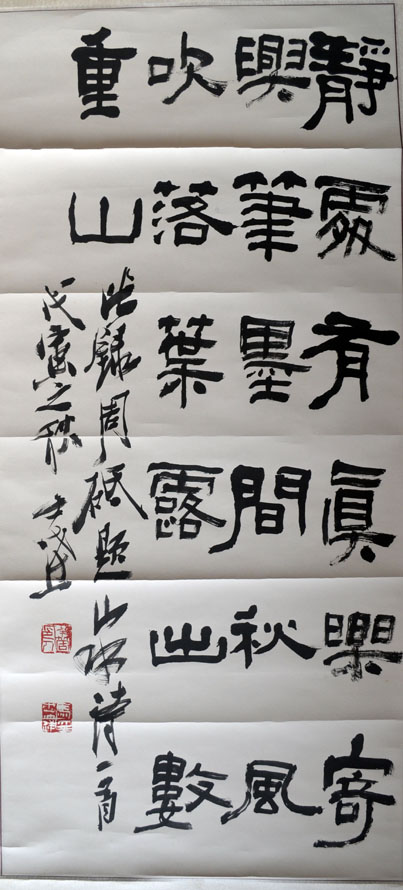 靜處有眞樂寄
興筆墨間秋風
吹落葉露出數
重山
此錄周砥題山水詩一首
戊寅之秋